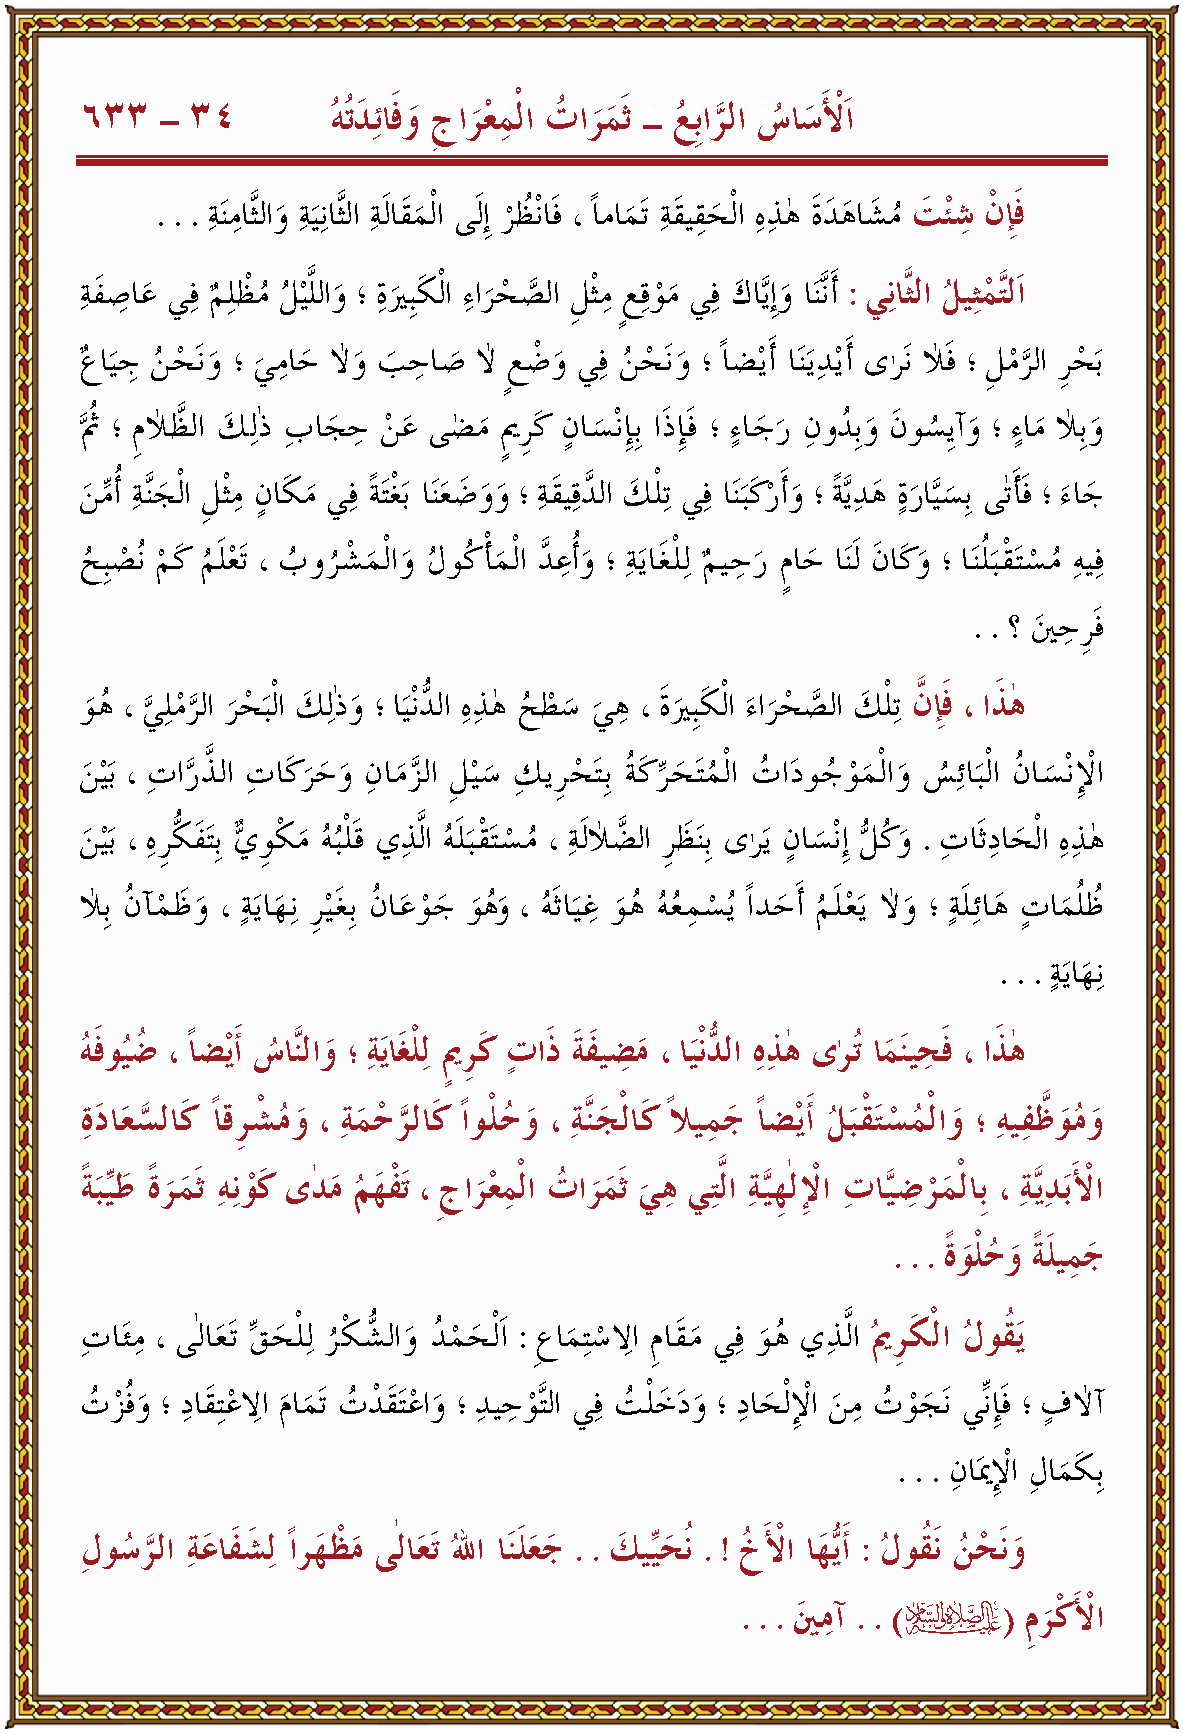 اَلْأَسَاسُ الرَّابِعُ ـ ثَمَرَاتُ الْمِعْرَاجِ وَفَائِدَتُهُ ٣٤ ـ ٦٣٣
فَإِنْ شِئْتَ مُشَاهَدَةَ هٰذِهِ الْحَقِيقَةِ تَمَاماً ، فَانْظُرْ إِلَى الْمَقَالَةِ الثَّانِيَةِ وَالثَّامِنَةِ . . .
اَلتَّمْثِيلُ الثَّانِي : أَنَّنَا وَإِيَّاكَ فِي مَوْقِعٍ مِثْلِ الصَّحْرَاءِ الْكَبِيرَةِ ؛ وَاللَّيْلُ مُظْلِمٌ فِي عَاصِفَةِ
بَحْرِ الرَّمْلِ ؛ فَلاٰ نَرٰى أَيْدِيَنَا أَيْضاً ؛ وَنَحْنُ فِي وَضْعٍ لاٰ صَاحِبَ وَلاٰ حَامِيَ ؛ وَنَحْنُ جِيَاعٌ
وَبِلاٰ مَاءٍ ؛ وَآيِسُونَ وَبِدُونِ رَجَاءٍ ؛ فَإِذَا بِإِنْسَانٍ كَرِيمٍ مَضٰى عَنْ حِجَابِ ذٰلِكَ الظَّلاٰمِ ؛ ثُمَّ
جَاءَ ؛ فَأَتٰى بِسَيَّارَةٍ هَدِيَّةً ؛ وَأَرْكَبَنَا فِي تِلْكَ الدَّقِيقَةِ ؛ وَوَضَعَنَا بَغْتَةً فِي مَكَانٍ مِثْلِ الْجَنَّةِ أُمِّنَ
فِيهِ مُسْتَقْبَلُنَا ؛ وَكَانَ لَنَا حَامٍ رَحِيمٌ لِلْغَايَةِ ؛ وَأُعِدَّ الْمَأْكُولُ وَالْمَشْرُوبُ ، تَعْلَمُ كَمْ نُصْبِحُ
فَرِحِينَ ؟ . .
هٰذَا ، فَإِنَّ تِلْكَ الصَّحْرَاءَ الْكَبِيرَةَ ، هِيَ سَطْحُ هٰذِهِ الدُّنْيَا ؛ وَذٰلِكَ الْبَحْرَ الرَّمْلِيَّ ، هُوَ
الْإِنْسَانُ الْبَائِسُ وَالْمَوْجُودَاتُ الْمُتَحَرِّكَةُ بِتَحْرِيكِ سَيْلِ الزَّمَانِ وَحَرَكَاتِ الذَّرَّاتِ ، بَيْنَ
هٰذِهِ الْحَادِثَاتِ . وَكُلُّ إِنْسَانٍ يَرٰى بِنَظَرِ الضَّلاٰلَةِ ، مُسْتَقْبَلَهُ الَّذِي قَلْبُهُ مَكْوِيٌّ بِتَفَكُّرِهِ ، بَيْنَ
ظُلُمَاتٍ هَائِلَةٍ ؛ وَلاٰ يَعْلَمُ أَحَداً يُسْمِعُهُ هُوَ غِيَاثَهُ ، وَهُوَ جَوْعَانُ بِغَيْرِ نِهَايَةٍ ، وَظَمْآنُ بِلاٰ
نِهَايَةٍ . . .
هٰذَا ، فَحِينَمَا تُرٰى هٰذِهِ الدُّنْيَا ، مَضِيفَةَ ذَاتٍ كَرِيمٍ لِلْغَايَةِ ؛ وَالنَّاسُ أَيْضاً ، ضُيُوفَهُ
وَمُوَظَّفِيهِ ؛ وَالْمُسْتَقْبَلُ أَيْضاً جَمِيلاً كَالْجَنَّةِ ، وَحُلْواً كَالرَّحْمَةِ ، وَمُشْرِقاً كَالسَّعَادَةِ
الْأَبَدِيَّةِ ، بِالْمَرْضِيَّاتِ الْإِلٰهِيَّةِ الَّتِي هِيَ ثَمَرَاتُ الْمِعْرَاجِ ، تَفْهَمُ مَدٰى كَوْنِهِ ثَمَرَةً طَيِّبَةً
جَمِيلَةً وَحُلْوَةً . . .
يَقُولُ الْكَرِيمُ الَّذِي هُوَ فِي مَقَامِ الاِسْتِمَاعِ : اَلْحَمْدُ وَالشُّكْرُ لِلْحَقِّ تَعَالٰى ، مِئَاتِ
آلاٰفٍ ؛ فَإِنِّي نَجَوْتُ مِنَ الْإِلْحَادِ ؛ وَدَخَلْتُ فِي التَّوْحِيدِ ؛ وَاعْتَقَدْتُ تَمَامَ الاِعْتِقَادِ ؛ وَفُزْتُ
بِكَمَالِ الْإِيمَانِ . . .
وَنَحْنُ نَقُولُ : أَيُّهَا الْأَخُ ! . نُحَيِّيكَ . . جَعَلَنَا اللهُ تَعَالٰى مَظْهَراً لِشَفَاعَةِ الرَّسُولِ
الْأَكْرَمِ (عَلَيْهِ الصَّلاَةُ وَالسَّلاَمُ) . . آمِينَ . . .